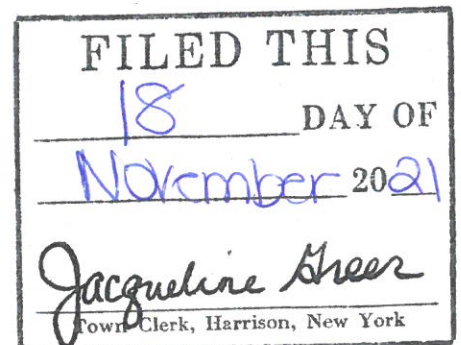 FILED THIS
18 DAY OF
November 2021
Jacqueline Greer
Town Clerk, Harrison, New York